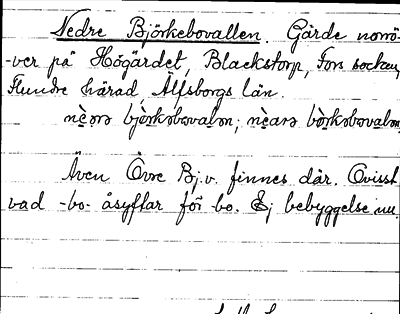 Nedre Björkebovallen. Gärde norrö-
-ver på Högärdet, Blackstorp, Fors socken,
Flundre härad Älfsborgs län.
nèɷrə bjòrkəbovalən; nèarə bòrkəbovalən
Även Övre Bj.v. finnes där. Ovisst
vad -bo- åsyftar för bo. Ej bebyggelse nu.